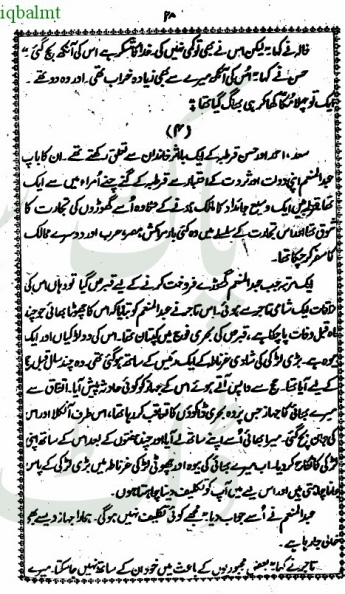 iqbalmt
۳۸
خالد نے کہا "لیکن اس نے بھی تو کمی نہیں کی۔ خدا کا شکر ہے اس کی آنکھ بچ گئی"
حسن نے کہا "اُس کی آنکھ میرے سے بھی زیادہ خراب تھی۔ اور وہ دو تھے۔
ایک تو پہلا مُکا کھا کر ہی بھاگ گیا تھا"
(۴)
سعد، احمد اور حسن قرطبہ کے ایک بااثر خاندان سے تعلق رکھتے تھے۔ ان کا باپ
عبدالمنعم اپنی دولت اور ثروت کے اعتبار سے قرطبہ کے گنے چنے اُمراء میں سے ایک
تھا۔ قرطبہ میں ایک وسیع جائداد کا مالک ہونے کے علاوہ اُسے گھوڑوں کی تجارت کا
شوق تھا اور اس تجارت کے سلسلے میں وہ کئی بار مراکش، مصر، عرب اور دوسرے ممالک
کا سفر کر چکا تھا۔
ایک مرتبہ جب عبدالمنعم گھوڑے فروخت کرنے کے لیے قبرص گیا تو وہاں اس کی
ملاقات ایک شامی تاجر سے ہوئی۔ اس تاجر نے عبدالمنعم کو بتایا کہ اس کا چھوٹا بھائی جو چند
ماہ قبل وفات پا چکا ہے، قبرص کی بحری فوج میں کپتان تھا۔ اس کی دو لڑکیاں اور ایک
بیوہ ہے۔ بڑی لڑکی کی شادی غرناطہ کے ایک رئیس کے ساتھ ہو گئی تھی۔ وہ چند سال قبل حج
کے لیے آیا تھا۔ حج سے واپس آتے ہوئے اس کے جہاز کو کوئی حادثہ پیش آیا۔ اتفاق سے
میرے بھائی کا جہاز جس پر وہ بحری ڈاکوؤں کا تعاقب کر رہا تھا، اس طرف آ نکلا اور اس
کی جان بچ گئی۔ میرا بھائی اُسے اپنے ساتھ لے آیا اور چند ہفتوں کے بعد اس کے ساتھ اپنی
لڑکی کا نکاح کر دیا۔ اب میرے بھائی کی بیوہ اور چھوٹی لڑکی غرناطہ میں بڑی لڑکی کے پاس
جانا چاہتی ہیں اور اس لیے میں آپ کو تکلیف دینا چاہتا ہوں۔
عبدالمنعم نے اُسے جواب دیا "مجھے کوئی تکلیف نہیں ہوگی۔ ہمارا جہاز ویسے بھی
خالی جا رہا ہے۔
تاجر نے کہا "بعض مجبوریوں کے باعث میں خود ان کے ساتھ نہیں جا سکتا۔ میرے